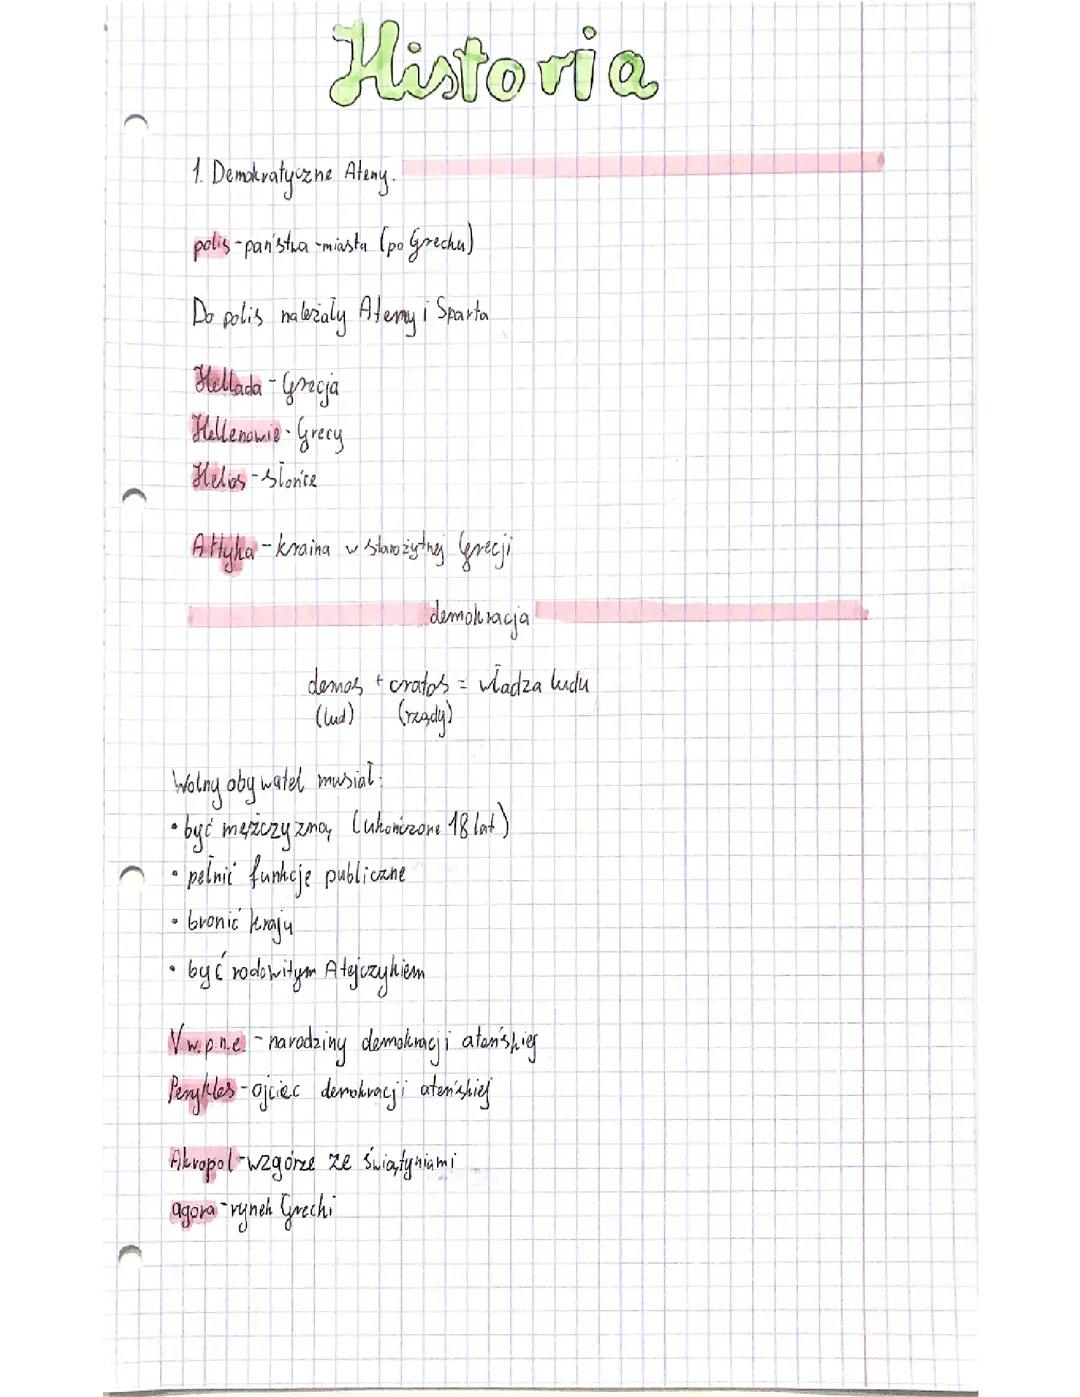 Historia
1. Demokratyczne Ateny.
polis - państwa - miasta (po Grecku)
Do polis należały Ateny i Sparta
Hellada - Grecja
Hellenowie - Grecy
Helios - słońce
Attyka - kraina w starożytnej Grecji
demokracja
demos + cratos = władza ludu
(lud) (rządy)
Wolny obywatel musiał:
• być mężczyzną (ukończone 18 lat)
• pełnić funkcje publiczne
• bronić kraju
• być rodowitym Atejczykiem
V w.p.n.e. - narodziny demokracji ateńskiej
Perykles - ojciec demokracji ateńskiej
Akropol - wzgórze ze świątyniami
agora - rynek Grecki